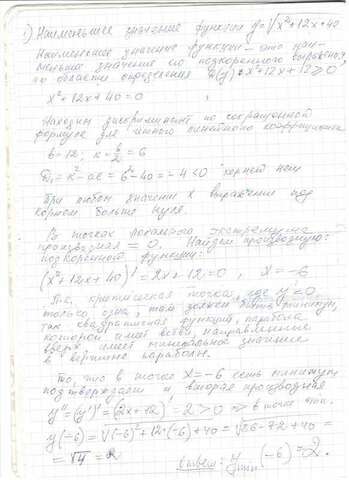 1) Наименьшее значение функции y=√x²+12x+40
Наименьшее значение функции – это наи-
меньшее значение подкоренного выражения,
по области определения D(y): x²+12x+12≥0,
x²+12x+40=0
Находим дискриминант по сокращенной
формуле для чётного коэффициента
b=12; k=b/2=6
D₁=k²-ac=6²-40=-4<0 корней нет
При любом значении x выражение под
корнем больше нуля.
В точках локального экстремума
производная = 0. Найдем производную
подкоренной функции:
(x²+12x+40)'=2x+12=0, x=-6
Т.к. критическая точка, где y'=0,
только одна, там должен быть минимум,
так квадратичная функция, парабола
которой имеет ветви, направленные
вверх, имеет минимальное значение
в вершине параболы.
То, что в точке x=-6 есть минимум,
подтверждает и вторая производная
y''=(y')'=(2x+12)'=2>0 ⇒ в точке min.
y(-6)=√(-6)²+12·(-6)+40=√36-72+40=
=√4=2
Ответ: ymin(-6)=2.